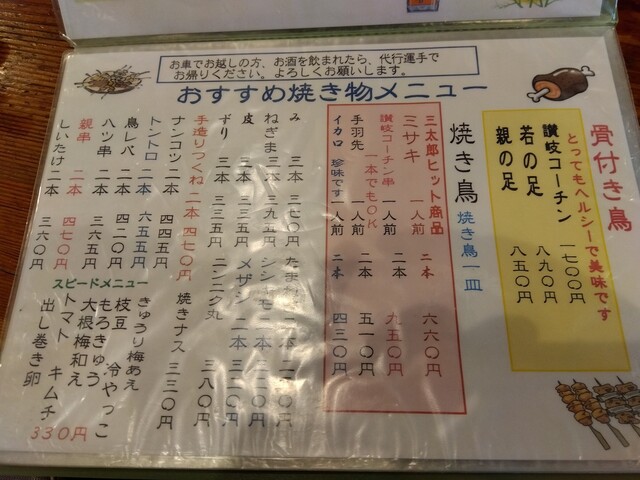 お車でお越しの方、お酒を飲まれたら、代行運手で
お帰りください。よろしくお願いします。
おすすめ焼き物メニュー
骨付き鳥
とってもヘルシーで美味です
讃岐コーチン 一七〇〇円
若の足 八九〇円
親の足 八五〇円
焼き鳥 焼き鳥一皿
三太郎ヒット商品
ミサキ 一人前 二本 六六〇円
讃岐コーチン串 二本 九五〇円
一本でもOK
手羽先 一人前 二本 五一〇円
イカロ 珍味です 一人前 二本 四三〇円
み 三本 三七〇円
ねぎま 三本 三九五円
皮 三本 三三五円
ずり 三本 三三五円
手造りつくね 二本 四七〇円
ナンコツ 二本 四四五円
トントロ 二本 六五五円
鳥レバ 二本 四二〇円
ハツ串 二本 三六五円
親串 二本 四七〇円
しいたけ 二本 三六〇円
メザシ 二本
ニンニク丸 三八〇円
焼きナス 三三〇円
スピードメニュー
きゅうり梅あえ
枝豆 冷やっこ
もろきゅう
大根梅和え
トマト キムチ
出し巻き卵
330円